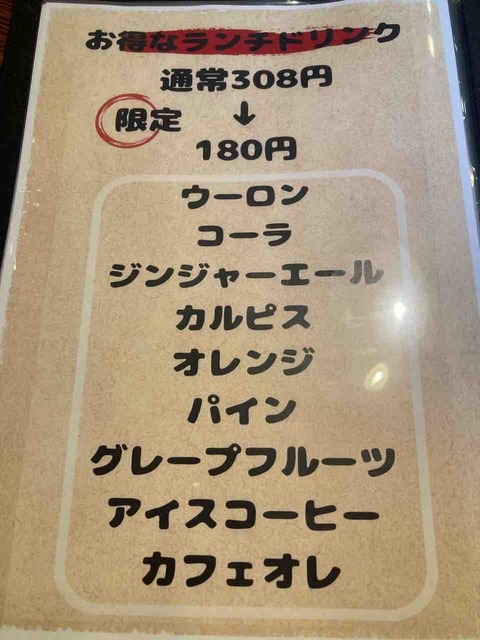 お得なランチドリンク
通常308円
限定 ↓
180円
ウーロン
コーラ
ジンジャーエール
カルピス
オレンジ
パイン
グレープフルーツ
アイスコーヒー
カフェオレ